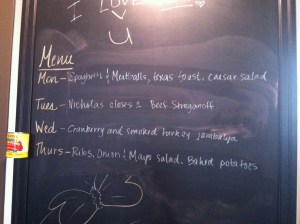 I LOVE
U
Menu
Mon - Spaghetti & Meatballs, texas toast, caesar salad
Tues - Nicholas closes : Beef Stroganoff
Wed - Cranberry and smoked turkey jambalya
Thurs - Ribs, Onion & Mayo salad, Baked potatoes